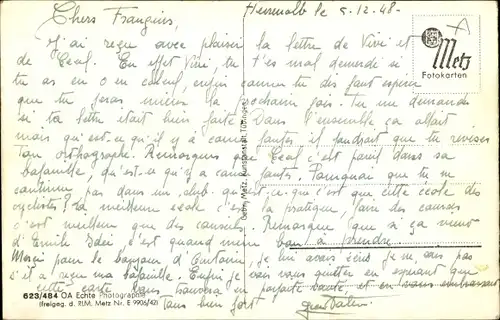 Herrenalb le 5.12.48-
Chers Frangins,
J'ai reçu avec plaisir la lettre de Vivi et
de Ceul. En effet Vivi, tu t'es mal demerdé si
tu as eu 0 en calcul, enfin comme tu dis faut espérer
que tu feras mieux la prochaine fois. Tu me demandes
si ta lettre était bien faite. Dans l'ensemble ça allait
mais qu'est-ce qu'il y a comme fautes il faudrait que tu revises
Ton orthographe. Remarques que Ceul c'est pareil dans sa
bafouille, qu'est-ce qu'il y a comme fautes. Pourquoi que tu ne
continue pas dans un club qu'est-ce que c'est que cette école des
cyclistes? La meilleure école c'est la pratique, faire des courses
c'est meilleur que des conseils. Remarque que si ça vient
d'Emile Idée c'est quand même bon à prendre.
Merci pour le bonjour d'Antoine, je lui avais écris je ne sais pas
s'il a reçu ma bafouille. Enfin je vais vous quitter en espérant que
cette carte vous trouvera en parfaite santé, et en vous embrassant
Tous bien fort
Metz
Fotokarten
Gebr. Metz, Kunstanstalt, Tübingen
623/484 OA Echte Photographie
(freigeg. d. RLM, Metz Nr. E 9906/42)